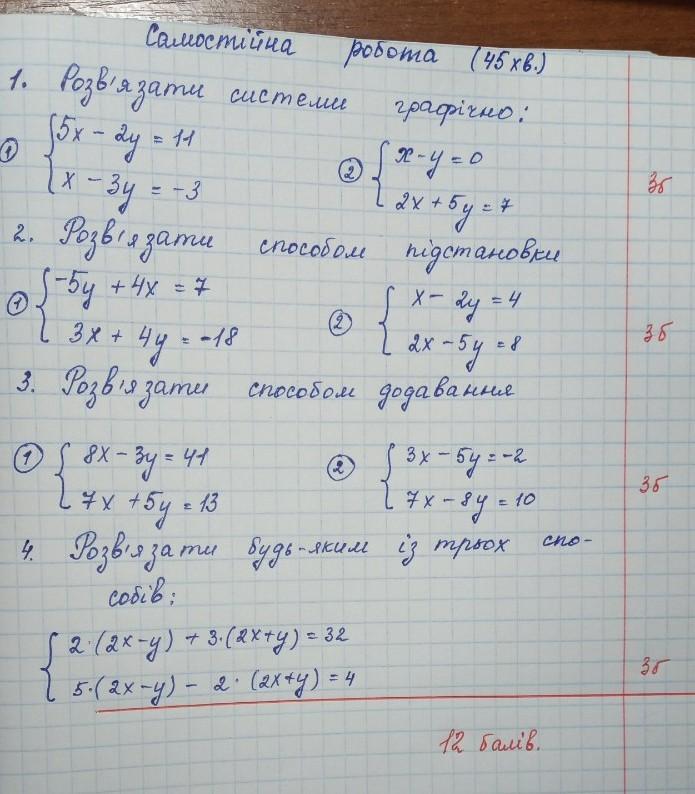 Самостійна робота (45 хв.)
1. Розв'язати системи графічно:
① { 5x - 2y = 11
x - 3y = -3
② { x - y = 0
2x + 5y = 7
3б
2. Розв'язати способом підстановки
① { -5y + 4x = 7
3x + 4y = -18
② { x - 2y = 4
2x - 5y = 8
3б
3. Розв'язати способом додавання
① { 8x - 3y = 41
7x + 5y = 13
② { 3x - 5y = -2
7x - 8y = 10
3б
4. Розв'язати будь-яким із трьох спо-
собів:
{ 2·(2x-y) + 3·(2x+y) = 32
5·(2x-y) - 2·(2x+y) = 4
3б
12 балів.